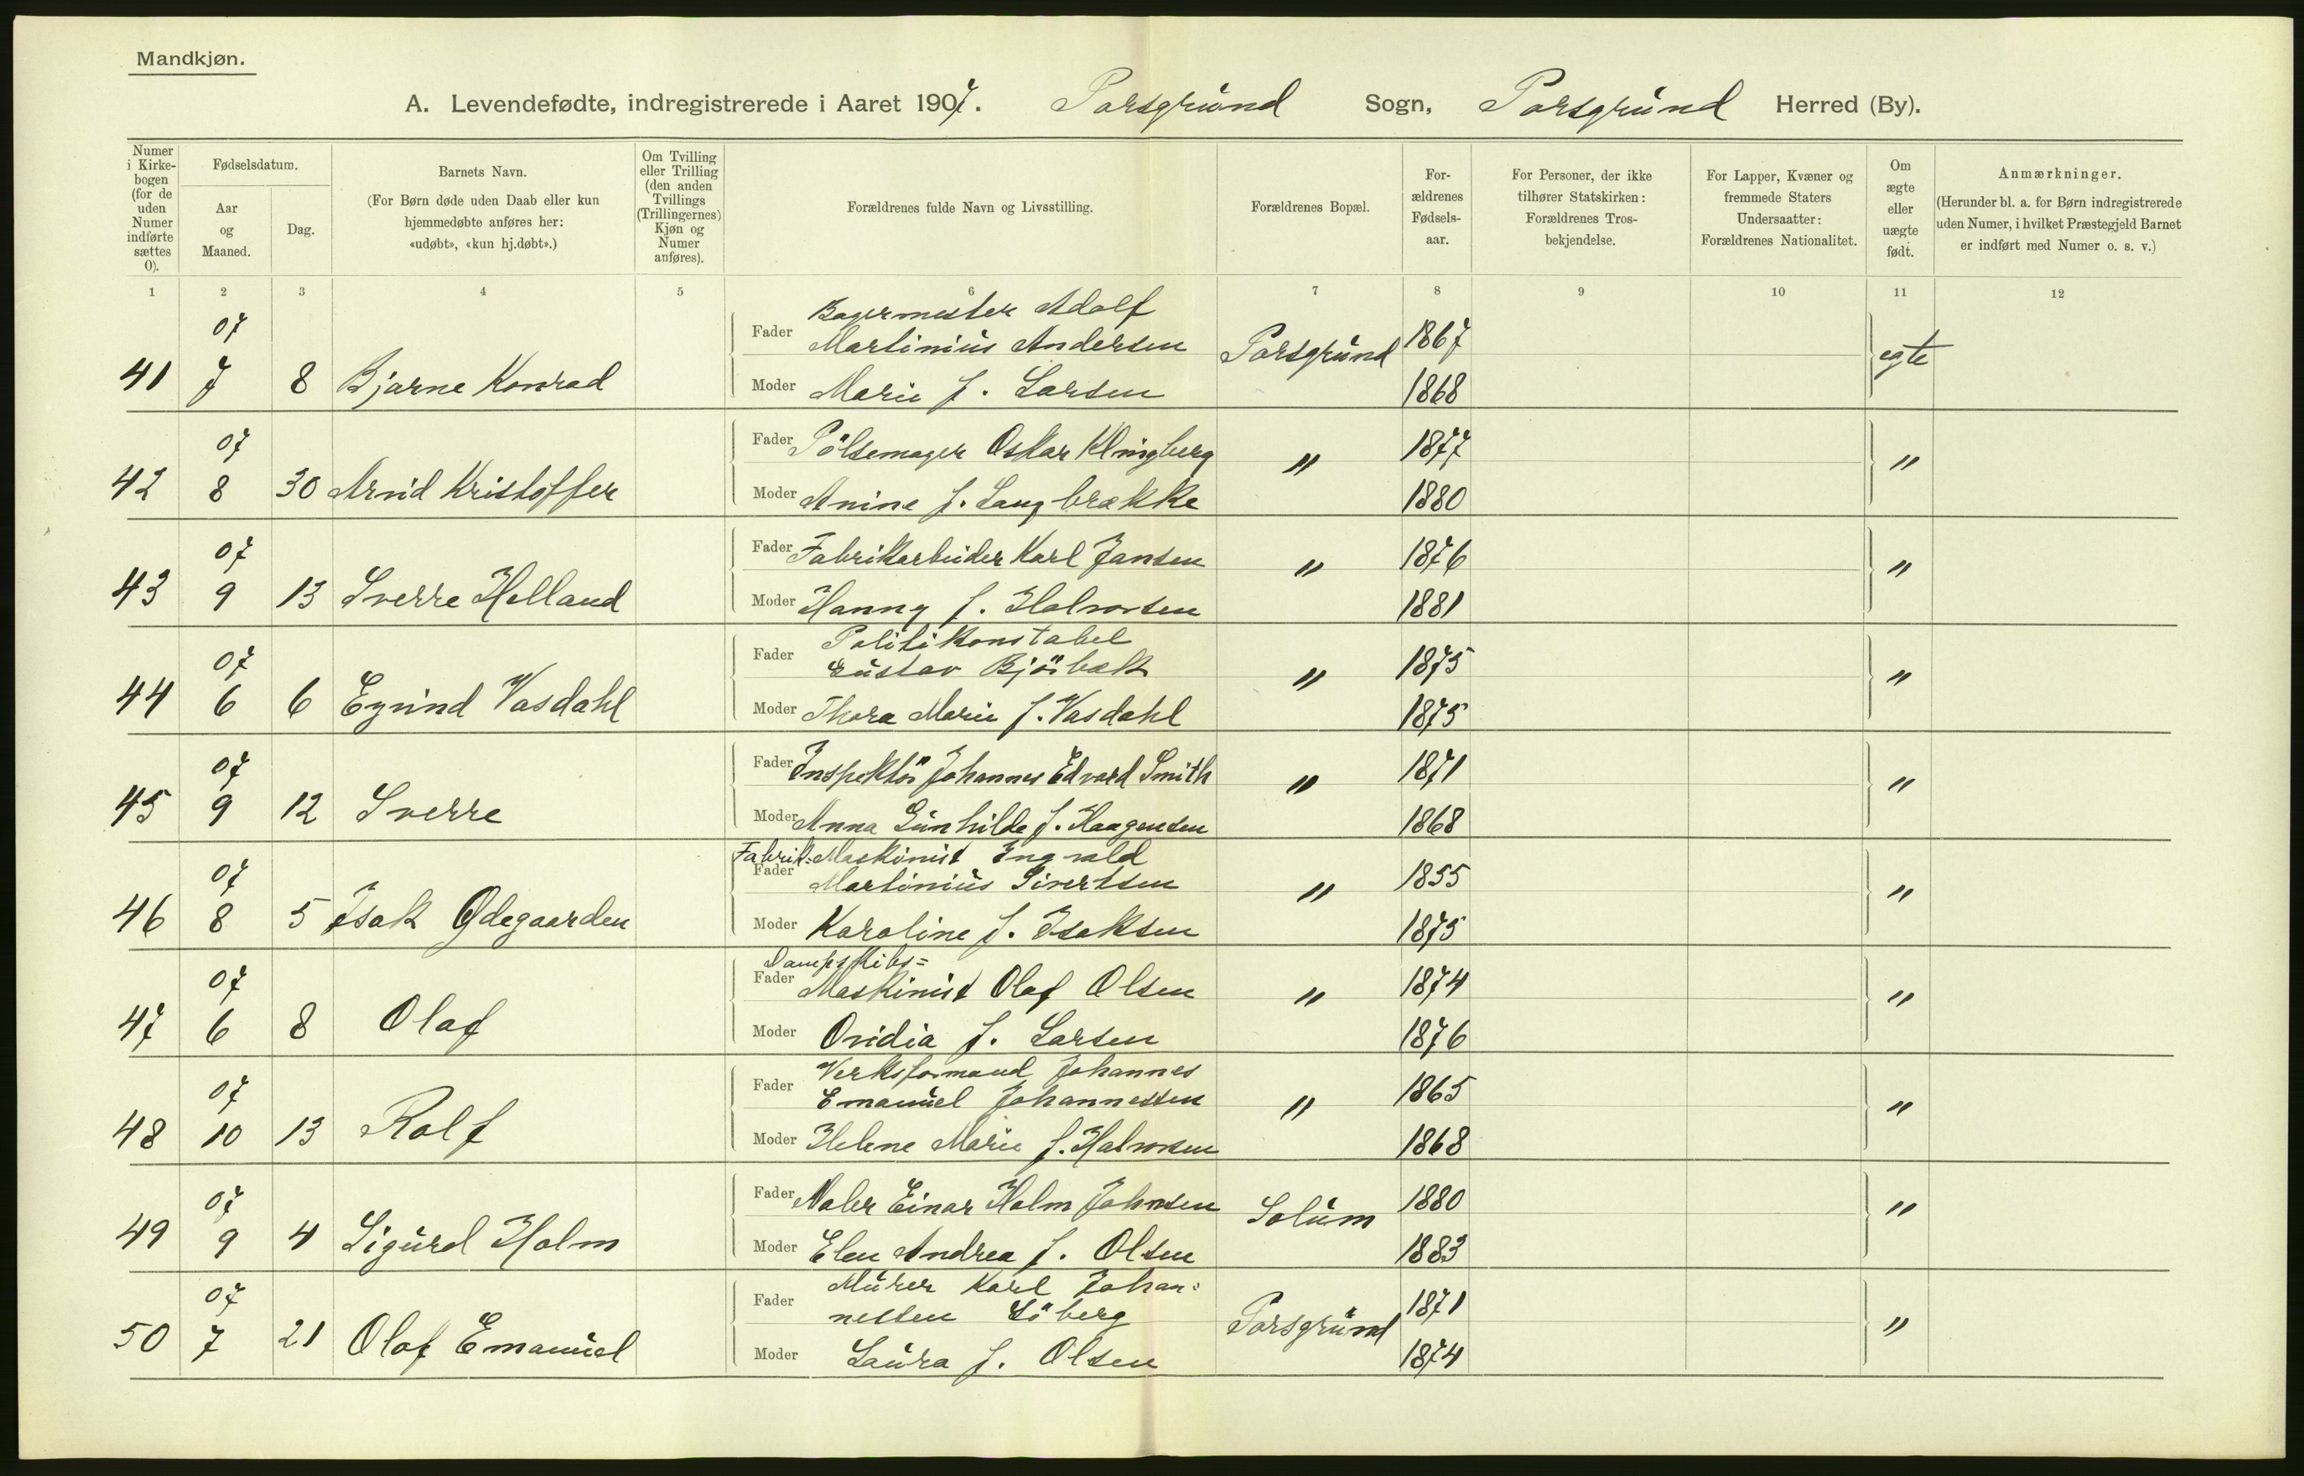 Mandkjøn.
A. Levendefødte, indregistrerede i Aaret 1907. Porsgrund Sogn, Porsgrund Herred (By).
Numer i Kirke-bogen (for de uden Numer indførte sættes 0).
Fødselsdatum.
Aar og Maaned.
Dag.
Barnets Navn.
(For Børn døde uden Daab eller kun
hjemmedøbte anføres her:
«udøbt», «kun hj.døbt».)
Om Tvilling
eller Trilling
(den anden
Tvillings
(Trillingernes)
Kjøn og
Numer
anføres).
Forældrenes fulde Navn og Livsstilling.
Forældrenes Bopæl.
For-
ældrenes
Fødsels-
aar.
For Personer, der ikke
tilhører Statskirken:
Forældrenes Tros-
bekjendelse.
For Lapper, Kvæner og
fremmede Staters
Undersaatter:
Forældrenes Nationalitet.
Om
ægte
eller
uægte
født.
Anmærkninger.
(Herunder bl. a. for Børn indregistrerede
uden Numer, i hvilket Præstegjeld Barnet
er indført med Numer o. s. v.)
1 2 3 4 5 6 7 8 9 10 11 12
41 07 7 8 Bjarne Konrad
Fader Bagermester Adolf
Martinius Andersen Porsgrund 1867 egte
Moder Marie f. Larsen 1868
42 07 8 30 Arvid Kristoffer
Fader Pölsemager Oskar Klingberg " 1877 "
Moder Anine f. Langbrække 1880
43 07 9 13 Sverre Helland
Fader Fabrikarbeider Karl Jansen " 1876 "
Moder Hanny f. Halvorsen 1881
44 07 6 6 Eyvind Vasdahl
Fader Politikonstabel
Gustav Bjöibæk " 1875 "
Moder Thora Marie f. Vasdahl 1875
45 07 9 12 Sverre
Fader Inspektör Johannes Edvard Smith " 1871 "
Moder Anna Gunhilde f. Haagensen 1868
46 07 8 5 Isak Ødegaarden
Fabrik-Maskinist Ingvald
Fader Martinius Sivertsen " 1855 "
Moder Karoline f. Isaksen 1875
47 07 6 8 Olaf
Dampskibs=
Fader Maskinist Olaf Olsen " 1874 "
Moder Ovidia f. Larsen 1876
48 07 10 13 Rolf
Fader Verksformand Johannes
Emanuel Johannessen " 1865 "
Moder Helene Marie f. Halvorsen 1868
49 07 9 4 Sigurd Holm
Fader Maler Einar Holm Johnsen Solum 1880 "
Moder Elen Andrea f. Olsen 1883
50 07 7 21 Olaf Emanuel
Fader Murer Karl Johan-
nessen Löberg Porsgrund 1871 "
Moder Laura f. Olsen 1874